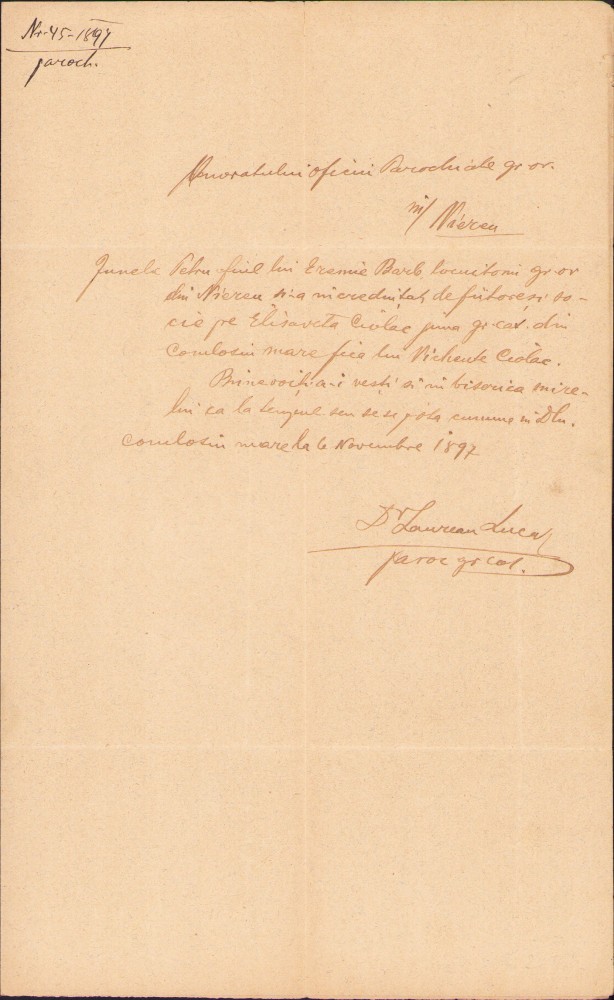 Nr. 45-1897
paroch.
Onoratului oficiu Parochiale gr. or.
in/ Niereu
Junele Petru fiul lui Eremie Barb locuitoriu gr. or
din Niereu si-a incredintat de fiitoresi so-
cie pe Elisaveta Ciolac juna gr. cat. din
Comlosiu mare fica lui Vichente Ciolac.
Binevoiti a-i vesti si in biserica mire-
lui ca la timpul seu se se pota cununa in Dlu.
Comlosiu mare la 6 Novembre 1897
Dr Laurean Luca
paroc gr. cat.